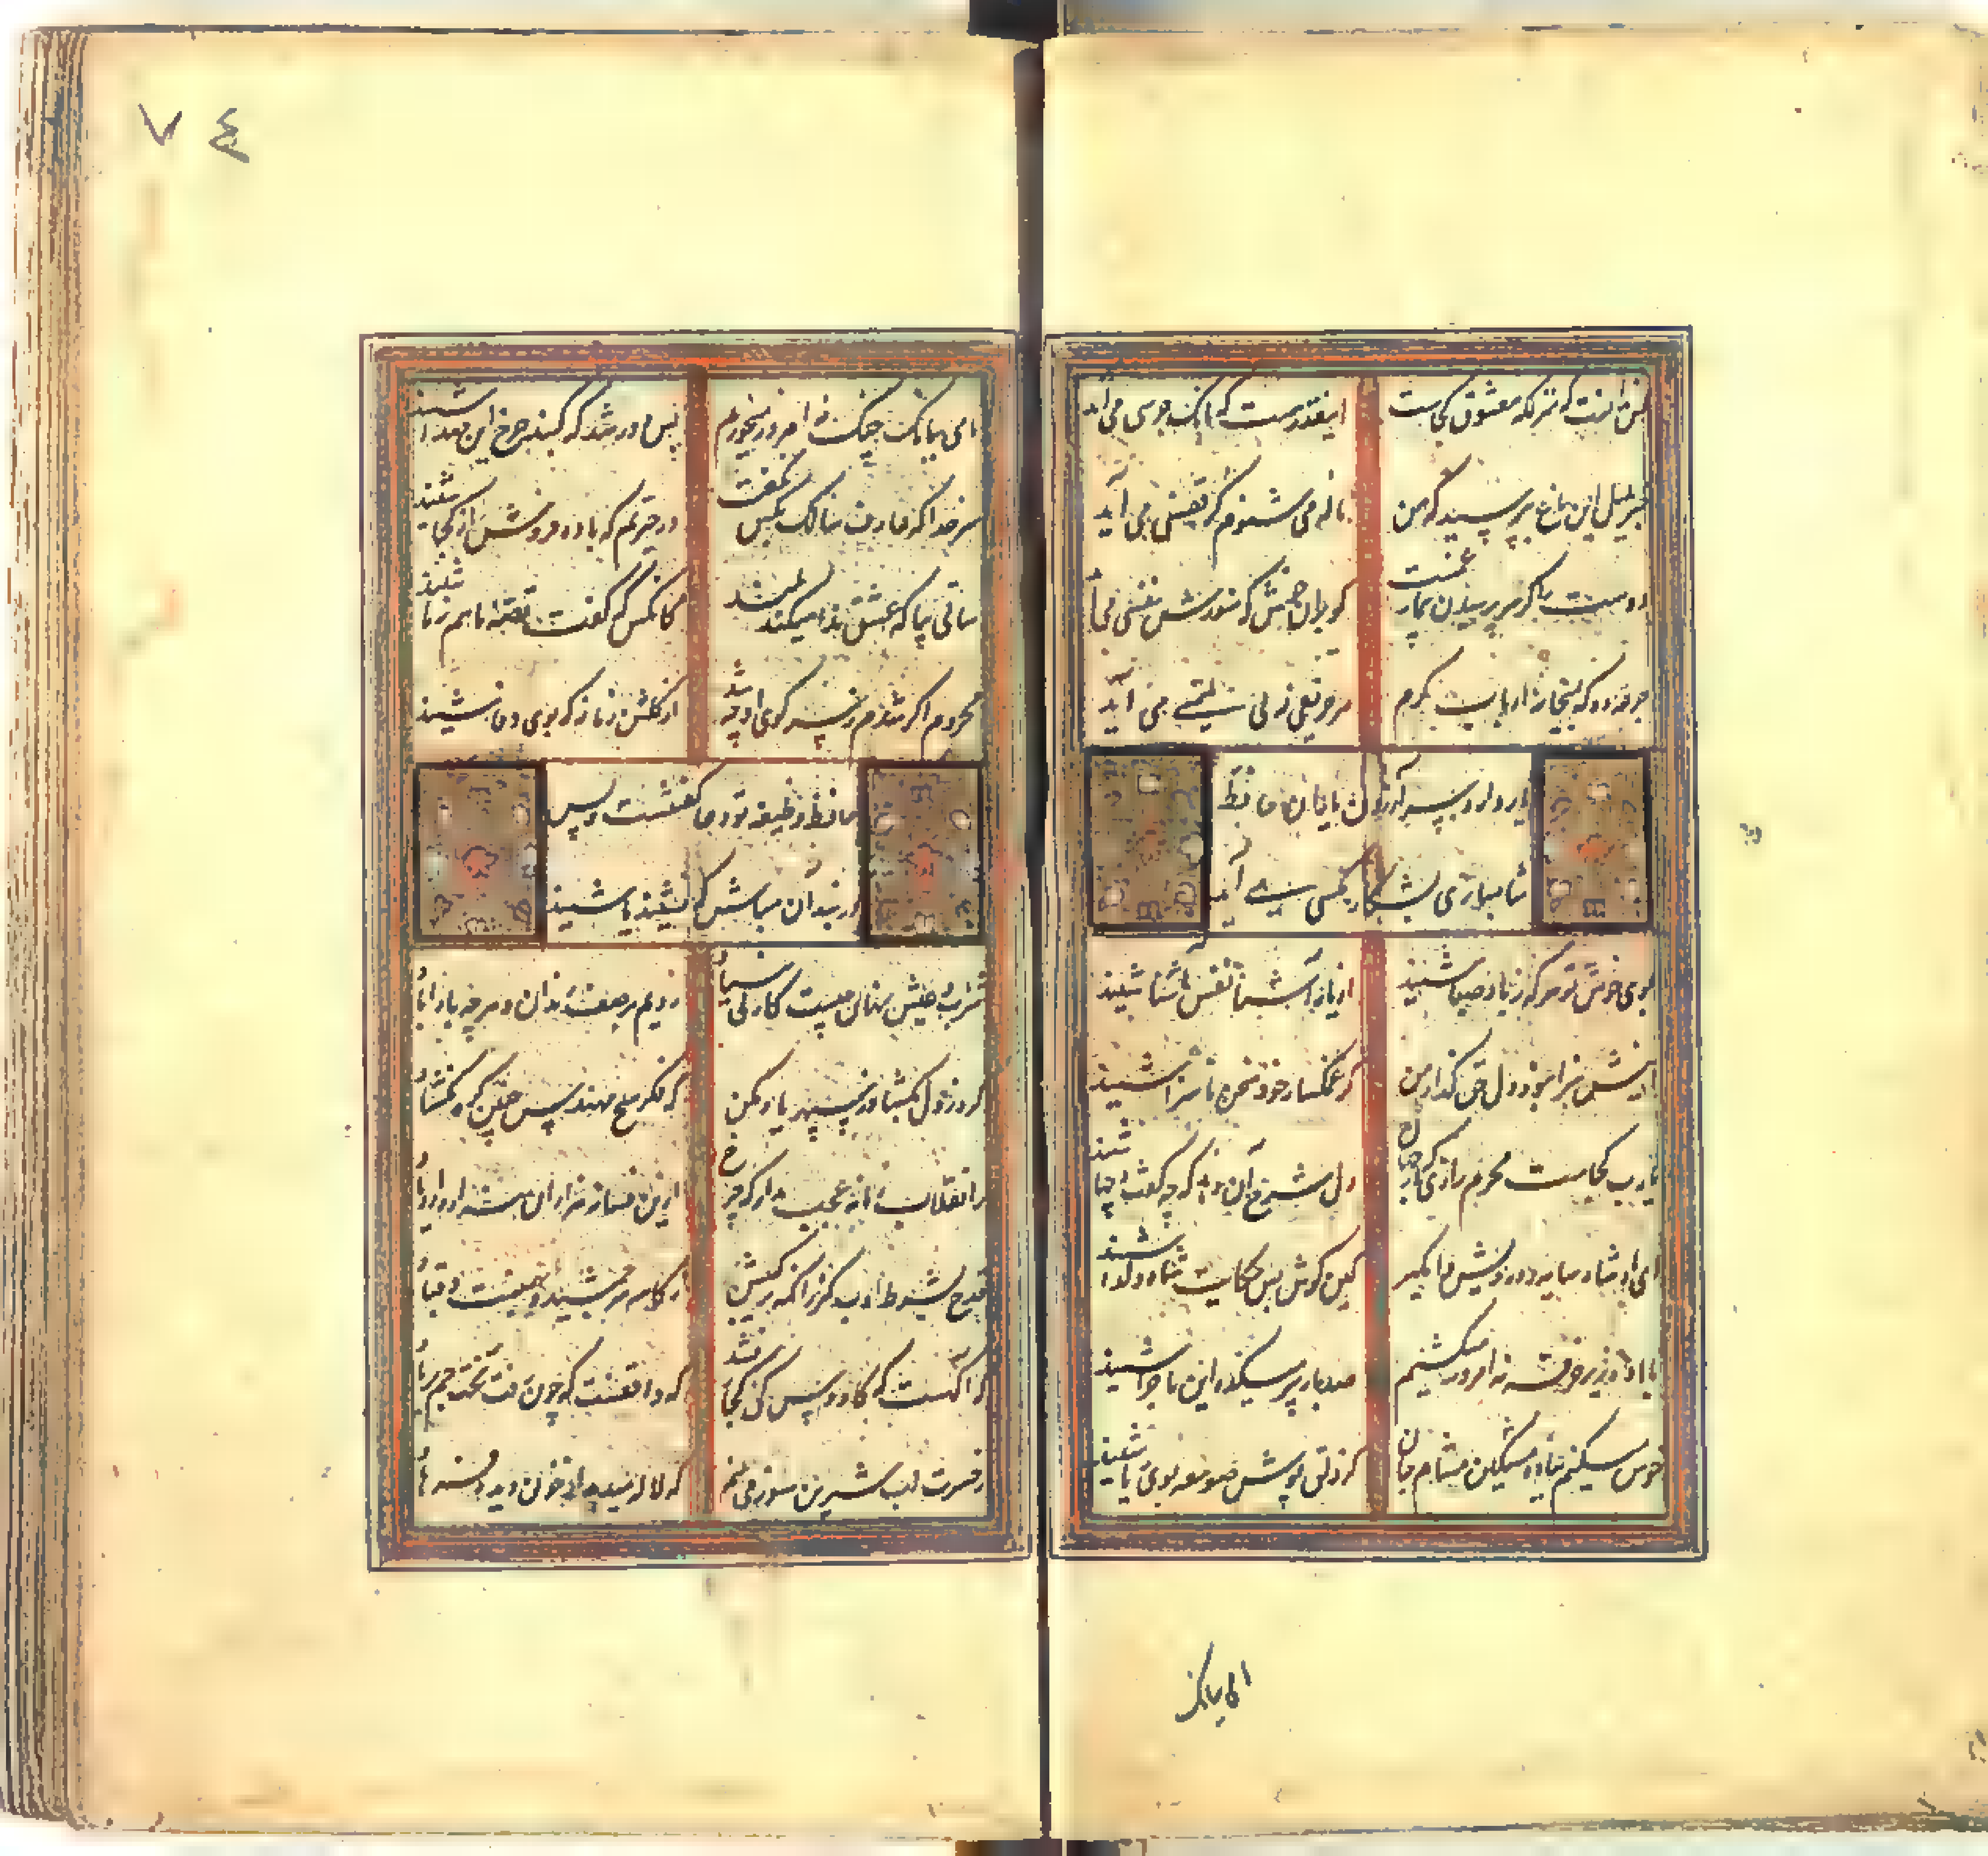 کس ندانست که منزلگه معشوق کجاست اینقدر هست که بانک جرسی می آید
خبر بلبل این باغ بپرسید که من ناله می شنوم کز قفسی می آید
دوست را گر سر پرسیدن بیمار غمست کو بران خوش که هنوزش نفسی می آید
جرعه ده که بمیخانه ارباب کرم هر حریفی ز پی ملتمسی می آید
یار دارد سر آزردن یاران حافظ
شاهبازی بشکار مگسی می آید
بوی خوش تو هر که ز باد صبا شنید از یار آشنا نفس آشنا شنید
اینش سزا نبود دل حق گذار من کز غمگسار خود سخن ناسزا شنید
یارب کجاست محرم رازی که یکزمان دل شرح آن دهد که چه گفت و چها شنید
ای پادشاه سایه ز درویش وا مگیر کین گوش بس حکایت شاه و گدا شنید
ما باده زیر خرقه نه امروز میکشیم صد بار پیر میکده این ماجرا شنید
خوش میکنم بباده مشکین مشام جان کز دلق پوش صومعه بوی ریا شنید
ما می ببانک
۷۴
ما می ببانک چنگ نه امروز میخوریم بس دور شد که گنبد چرخ این صدا شنید
سر خدا که عارف سالک بکس نگفت در حیرتم که باده فروش از کجا شنید
ساقی بیا که عشق ندا میکند بلند کانکس که گفت قصه ما هم ز ما شنید
محروم اگر شدم ز سر کوی او چه شد از گلشن زمانه که بوی وفا شنید
حافظ وظیفه تو دعا گفتنست و بس
در بند آن مباش که نشنید یا شنید
شراب و عیش نهان چیست کار بی بنیاد زدیم بر صف رندان و هر چه بادا باد
گره ز دل بگشا و ز سپهر یاد مکن که فکر هیچ مهندس چنین گره نگشاد
ز انقلاب زمانه عجب مدار که چرخ ازین فسانه هزاران هزار دارد یاد
قدح بشرط ادب گیر زانکه ترکیبش ز کاسه سر جمشید و بهمنست و قباد
که آگهست که کاوس و کی کجا رفتند که واقفست که چون رفت تخت جم بر باد
ز حسرت لب شیرین هنوز می بینم که لاله میدمد از خون دیده فرهاد